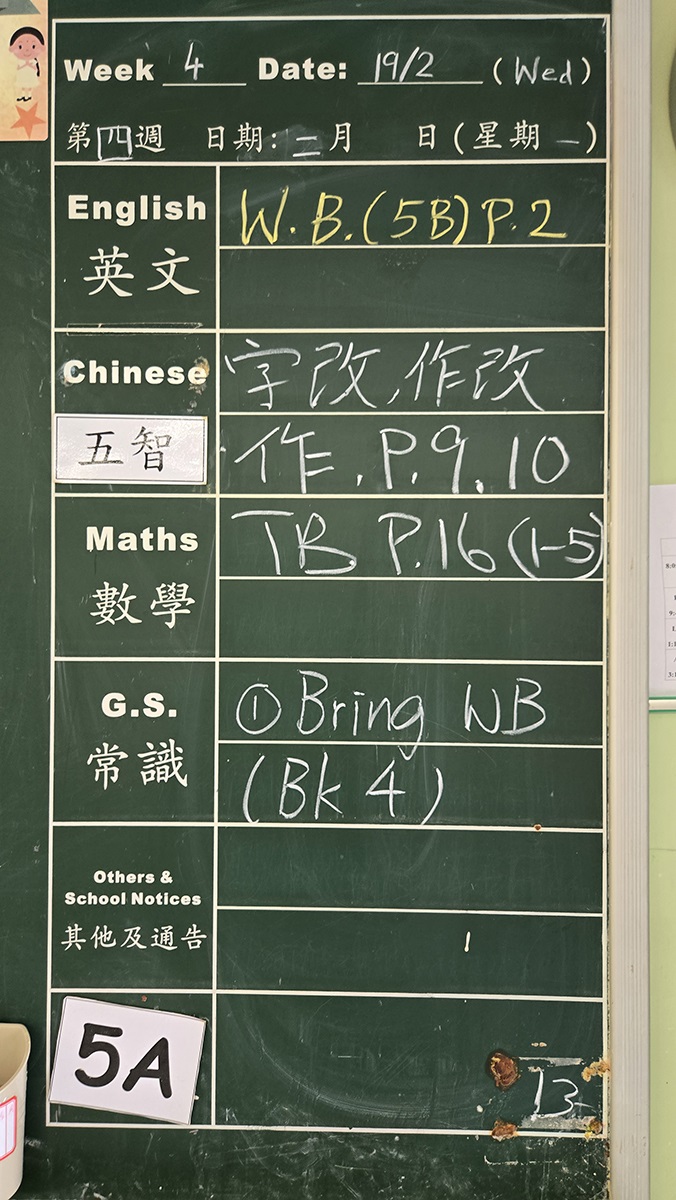 Week 4 Date: 19/2 (Wed)
第四週 日期: 二月 日(星期一)
English W.B.(5B) P.2
英文
Chinese 字改,作改
五智 作.P.9.10
Maths TB P.16 (1-5)
數學
G.S. ① Bring WB
常識 (Bk 4)
Others &
School Notices
其他及通告
5A
13